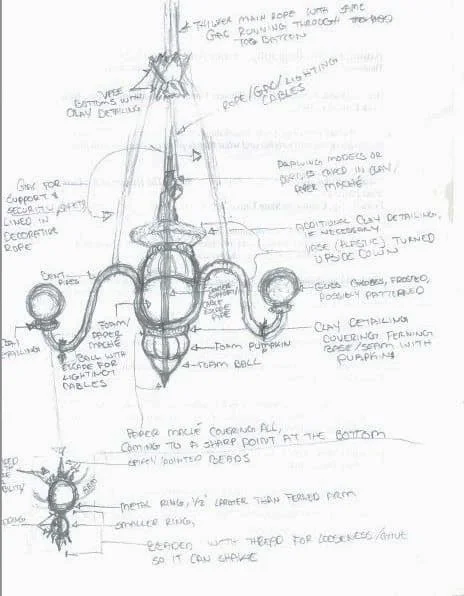 THICKER MAIN ROPE WITH SAME
GAC RUNNING THROUGH
TOP BATTEN
VASE
BOTTOMS WITH
CLAY DETAILING
ROPE/GAC/LIGHTING
CABLES
DRAWING MODELS OR
CARVED IN CLAY/
PAPER MACHE
GAC FOR
SUPPORT &
SECURITY/SAFETY
LINED IN
DECORATIVE
ROPE
ADDITIONAL CLAY DETAILING,
IF NECESSARY
VASE (PLASTIC) TURNED
UPSIDE DOWN
BENT
PIPES
GLASS GLOBES, FROSTED,
POSSIBLY PATTERNED
CENTER
SUPPORT/
PIPE
CLAY
DETAILING
FOAM/
PAPER
MACHE
CLAY DETAILING
COVERING
BASE/SEAM WITH
PUMPKIN
FOAM PUMPKIN
BALL WITH
ESCAPE FOR
LIGHTING
CABLES
FOAM BALL
PAPER MACHÉ COVERING ALL,
COMING TO A SHARP POINT AT THE BOTTOM
POINTED BEADS
ARM
METAL RING, 1/2" LARGER THAN FERLED ARM
SMALLER RING,
BEADED WITH THREAD FOR LOOSENESS/GIVE
SO IT CAN SHAKE